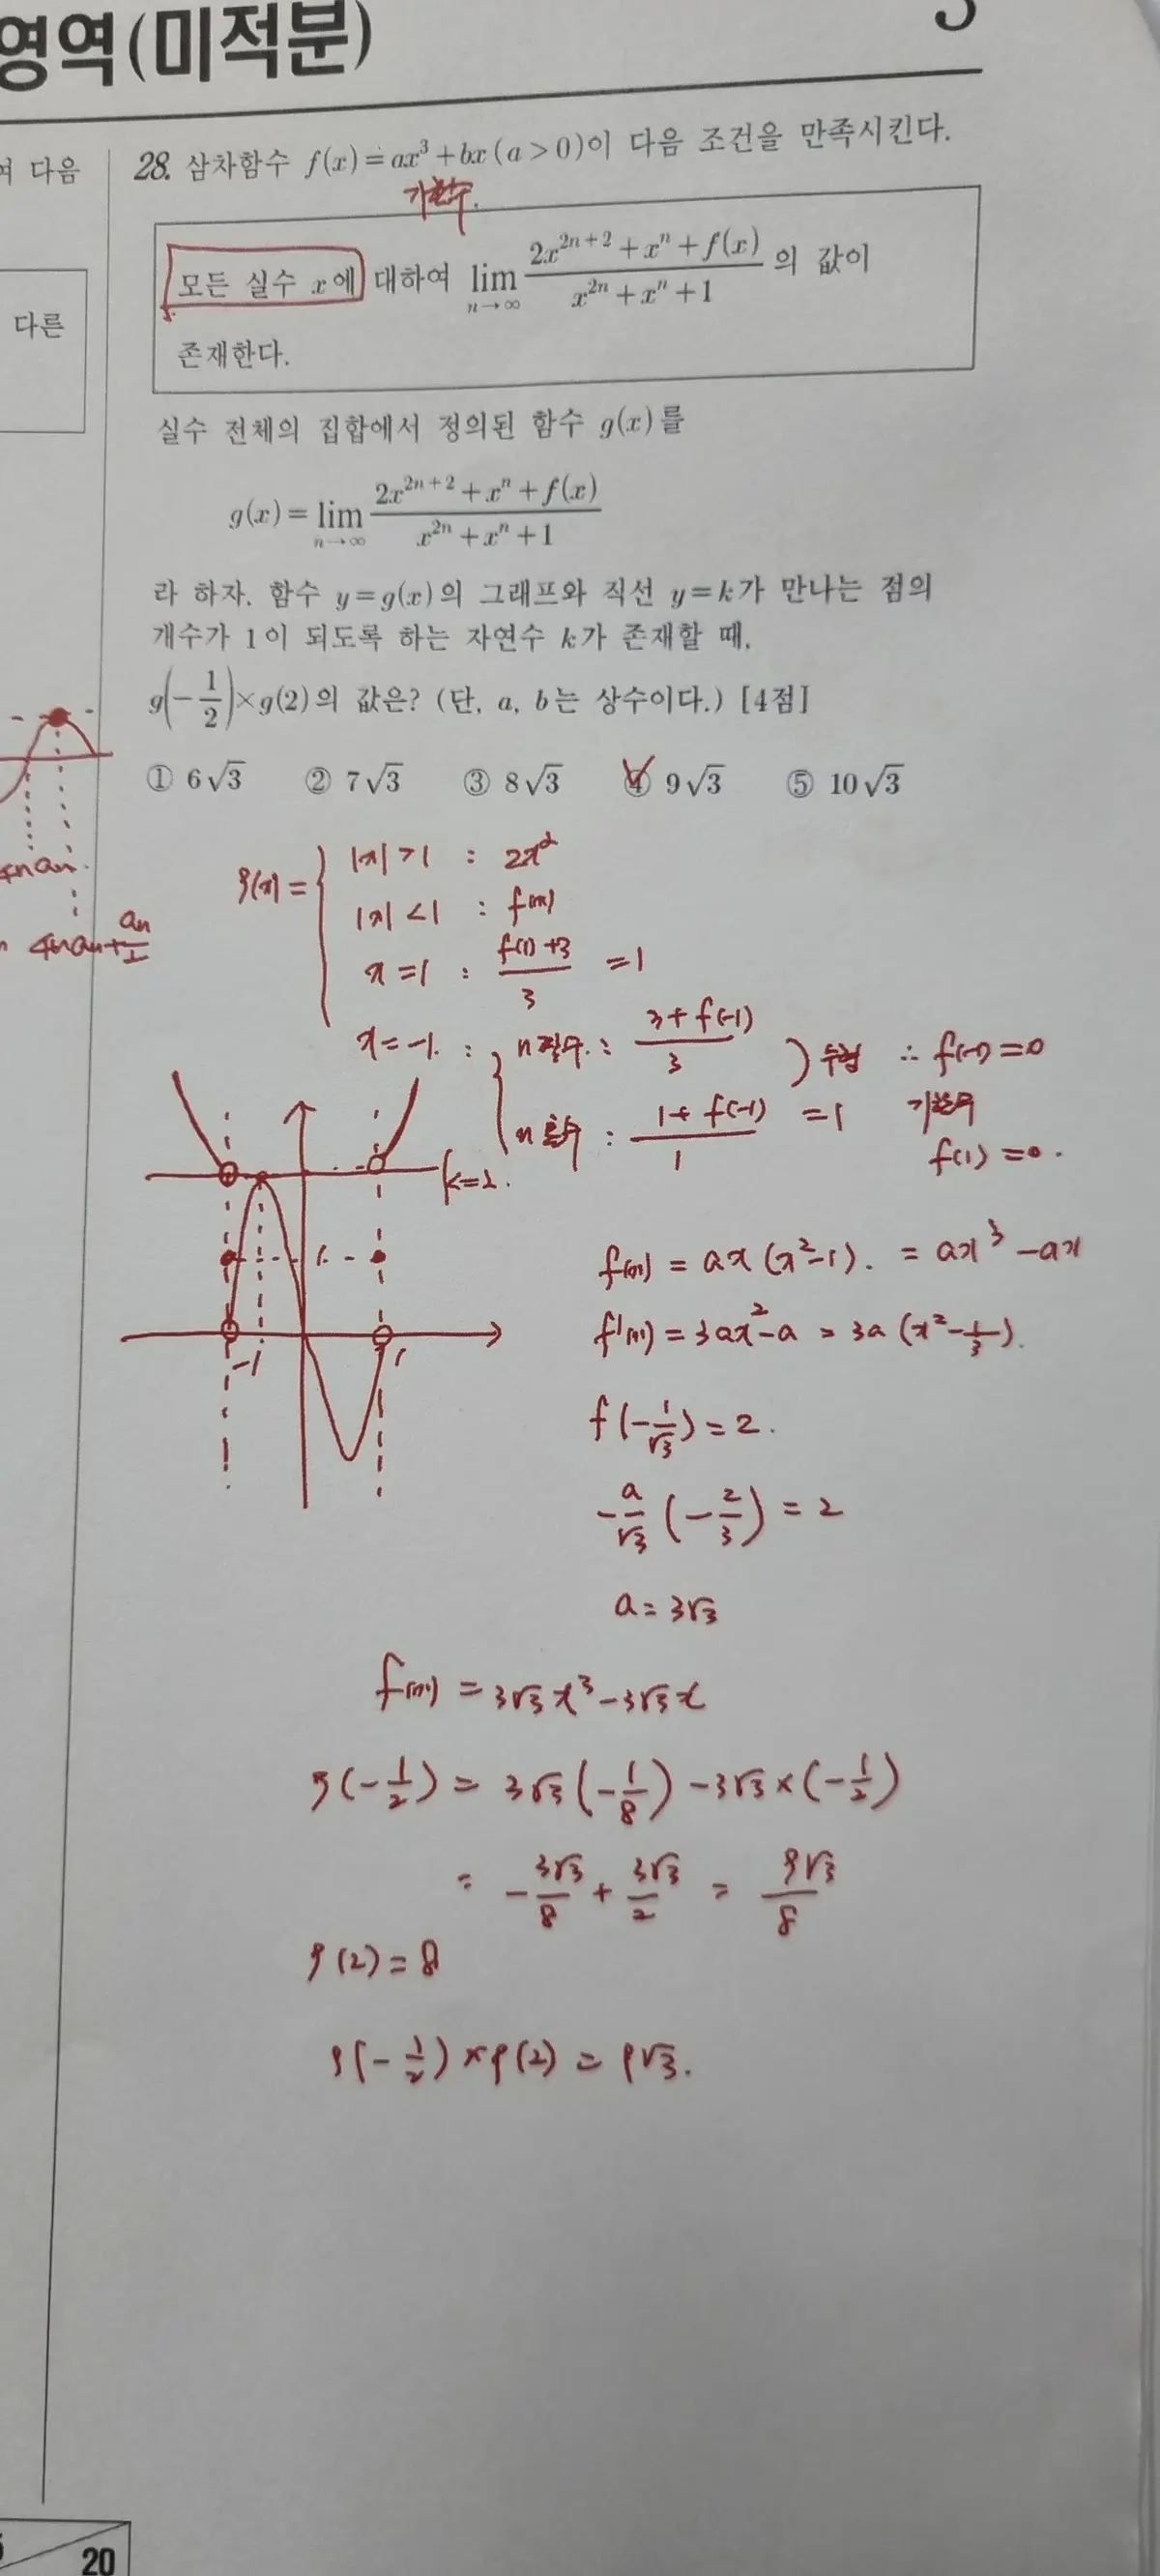 영역(미적분)
다음
다른
28. 삼차함수 f(x)=ax³+bx (a>0)이 다음 조건을 만족시킨다.
기함수.
모든 실수 x에 대하여 lim_{n→∞} (2x^{2n+2}+x^n+f(x))/(x^{2n}+x^n+1) 의 값이
존재한다.
실수 전체의 집합에서 정의된 함수 g(x)를
g(x)=lim_{n→∞} (2x^{2n+2}+x^n+f(x))/(x^{2n}+x^n+1)
라 하자. 함수 y=g(x)의 그래프와 직선 y=k가 만나는 점의
개수가 1이 되도록 하는 자연수 k가 존재할 때,
g(-1/2)×g(2)의 값은? (단, a, b는 상수이다.) [4점]
① 6√3 ② 7√3 ③ 8√3 ④ 9√3 ⑤ 10√3
g(x)= { |x|>1 : 2x²
|x|<1 : f(x)
x=1 : (f(1)+3)/3 =1
x=-1. : { n짝수. : (3+f(-1))/3
n홀수 : (1+f(-1))/1 =1
) 수렴 ∴ f(-1)=0
기함수
f(1)=0.
k=2.
1
-1
1
f(x) = ax(x²-1). = ax³-ax
f'(x) = 3ax²-a = 3a(x²-1/3).
f(-1/√3)=2.
-a/√3 (-2/3) = 2
a=3√3
f(x) = 3√3x³-3√3x
g(-1/2) = 3√3(-1/8)-3√3×(-1/2)
= -3√3/8 + 3√3/2 = 9√3/8
g(2)=8
g(-1/2)×g(2)=9√3.
20